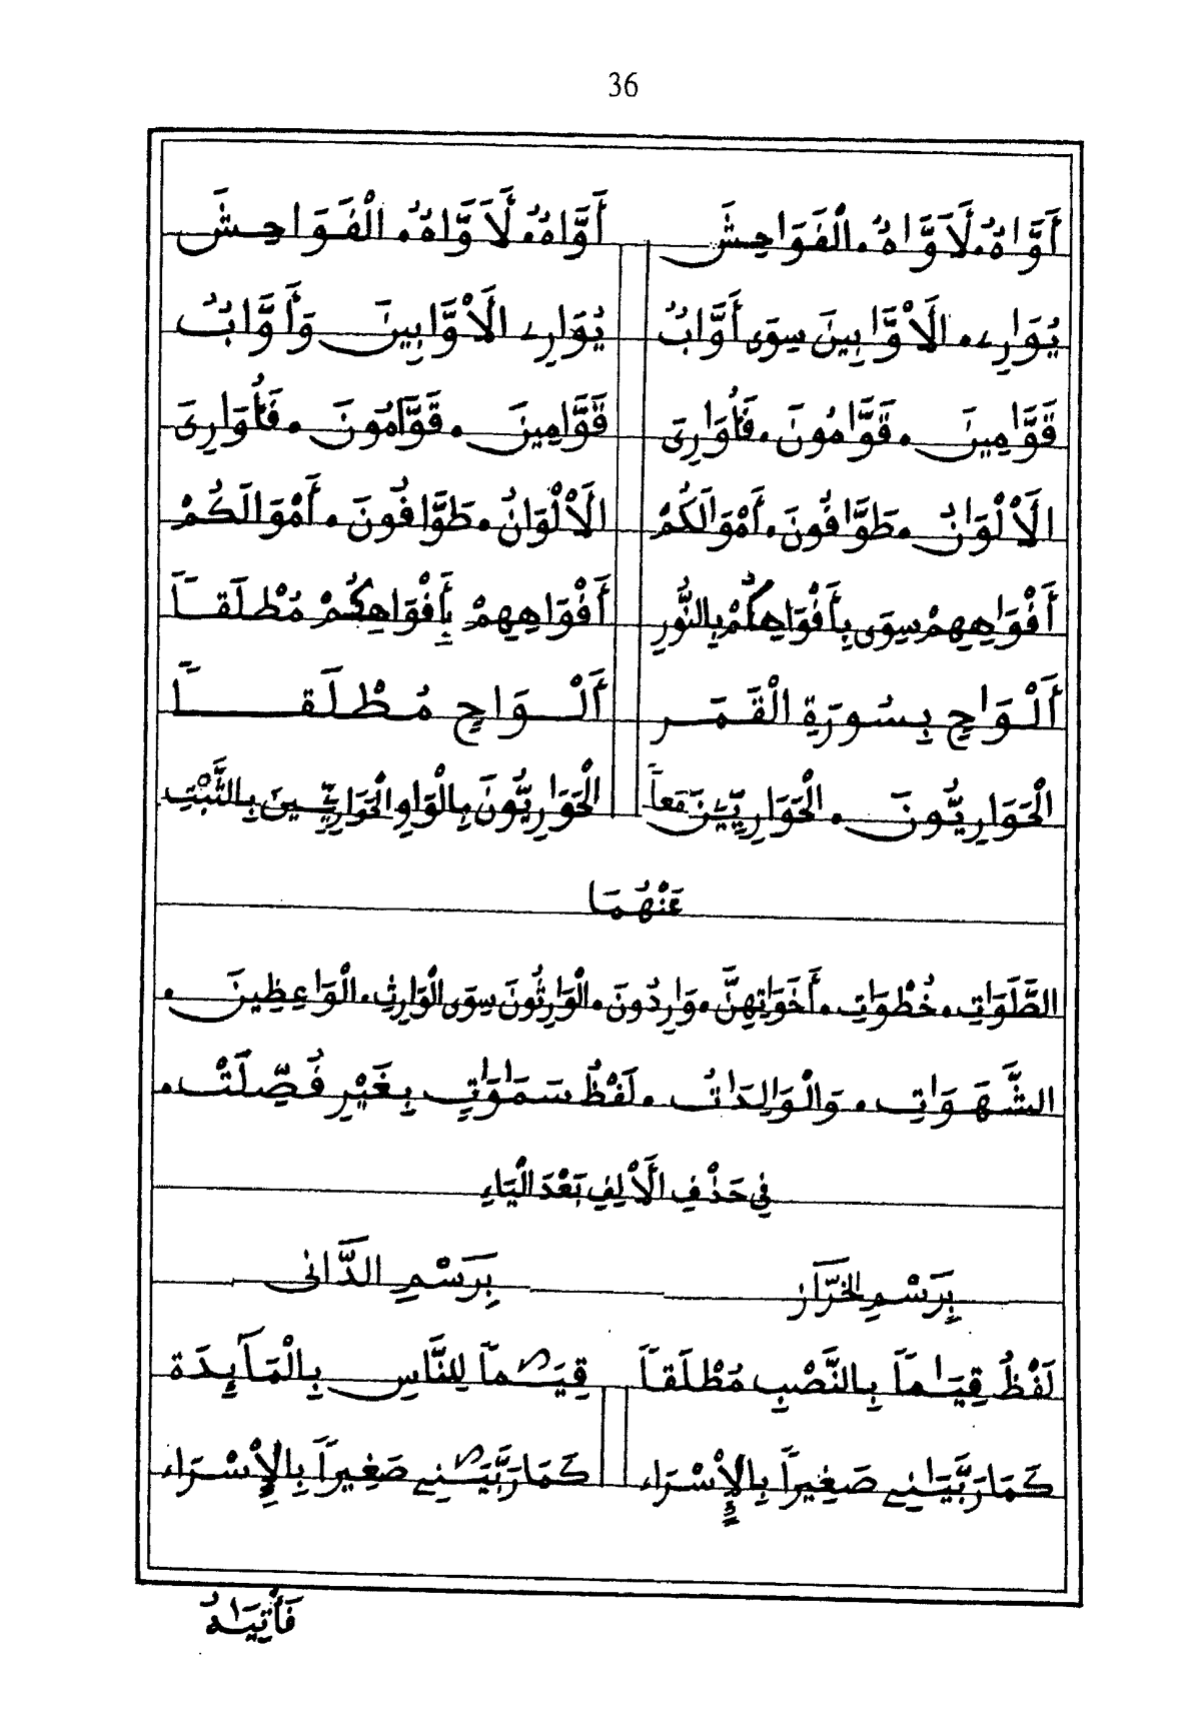 36
أَوَّاهٌ. لَأَوَّاهٌ. الْفَوَاحِشَ أَوَّاهٌ. لَأَوَّاهٌ. الْفَوَاحِشَ
يُوَارِے. الَاْوَّابِينَ سِوَى أَوَّابٌ يُوَارِے الَاْوَّابِينَ وَأَوَّابٌ
قَوَّامِينَ. قَوَّامُونَ. فَأُوَارِىَ قَوَّامِينَ. قَوَّامُونَ. فَأُوَارِىَ
الَاْلْوَانُ. طَوَّافُونَ. أَمْوَالَكُمْ الَاْلْوَانُ. طَوَّافُونَ. أَمْوَالَكُمْ
أَفْوَاهِهِمْ سِوَى بِأَفْوَاهِكُمْ بِالنُّورِ أَفْوَاهِهِمْ بِأَفْوَاهِكُمْ مُطْلَقاً
أَلْوَاحٍ بِسُورَةِ الْقَمَرِ أَلْوَاحٍ مُطْلَقاً
الْحَوَارِيُّونَ. الْحَوَارِيِّينَ مَعاً الْحَوَارِيُّونَ بِالْوَاوِ الْحَوَارِيِّينَ بِالثَّبْتِ
عَنْهُمَا
الصَّلَوَاتِ. خُطْوَاتِ. أَخَوَاتِهِنَّ. وَارِدُونَ. الْوَارِثُونَ سِوَى الْوَارِثِ. الْوَاعِظِينَ.
الشَّهَوَاتِ. وَالْوَالِدَاتُ. لَفْظُ سَمَاوَاتٍ بِغَيْرِ فُصِّلَتْ.
فِي حَذْفِ الَاْلِفِ بَعْدَ الْيَاءِ
بِرَسْمِ الْخَرَّاز بِرَسْمِ الدَّانِى
لَفْظُ قِيَاماً بِالنَّصْبِ مُطْلَقاً قِيَاماً لِلنَّاسِ بِالْمَآيِدَة
كَمَا رَبَّيَانِے صَغِيراً بِالْإِسْرَاء كَمَا رَبَّيَانِے صَغِيراً بِالْإِسْرَاء
فَأْتِيَاهُ